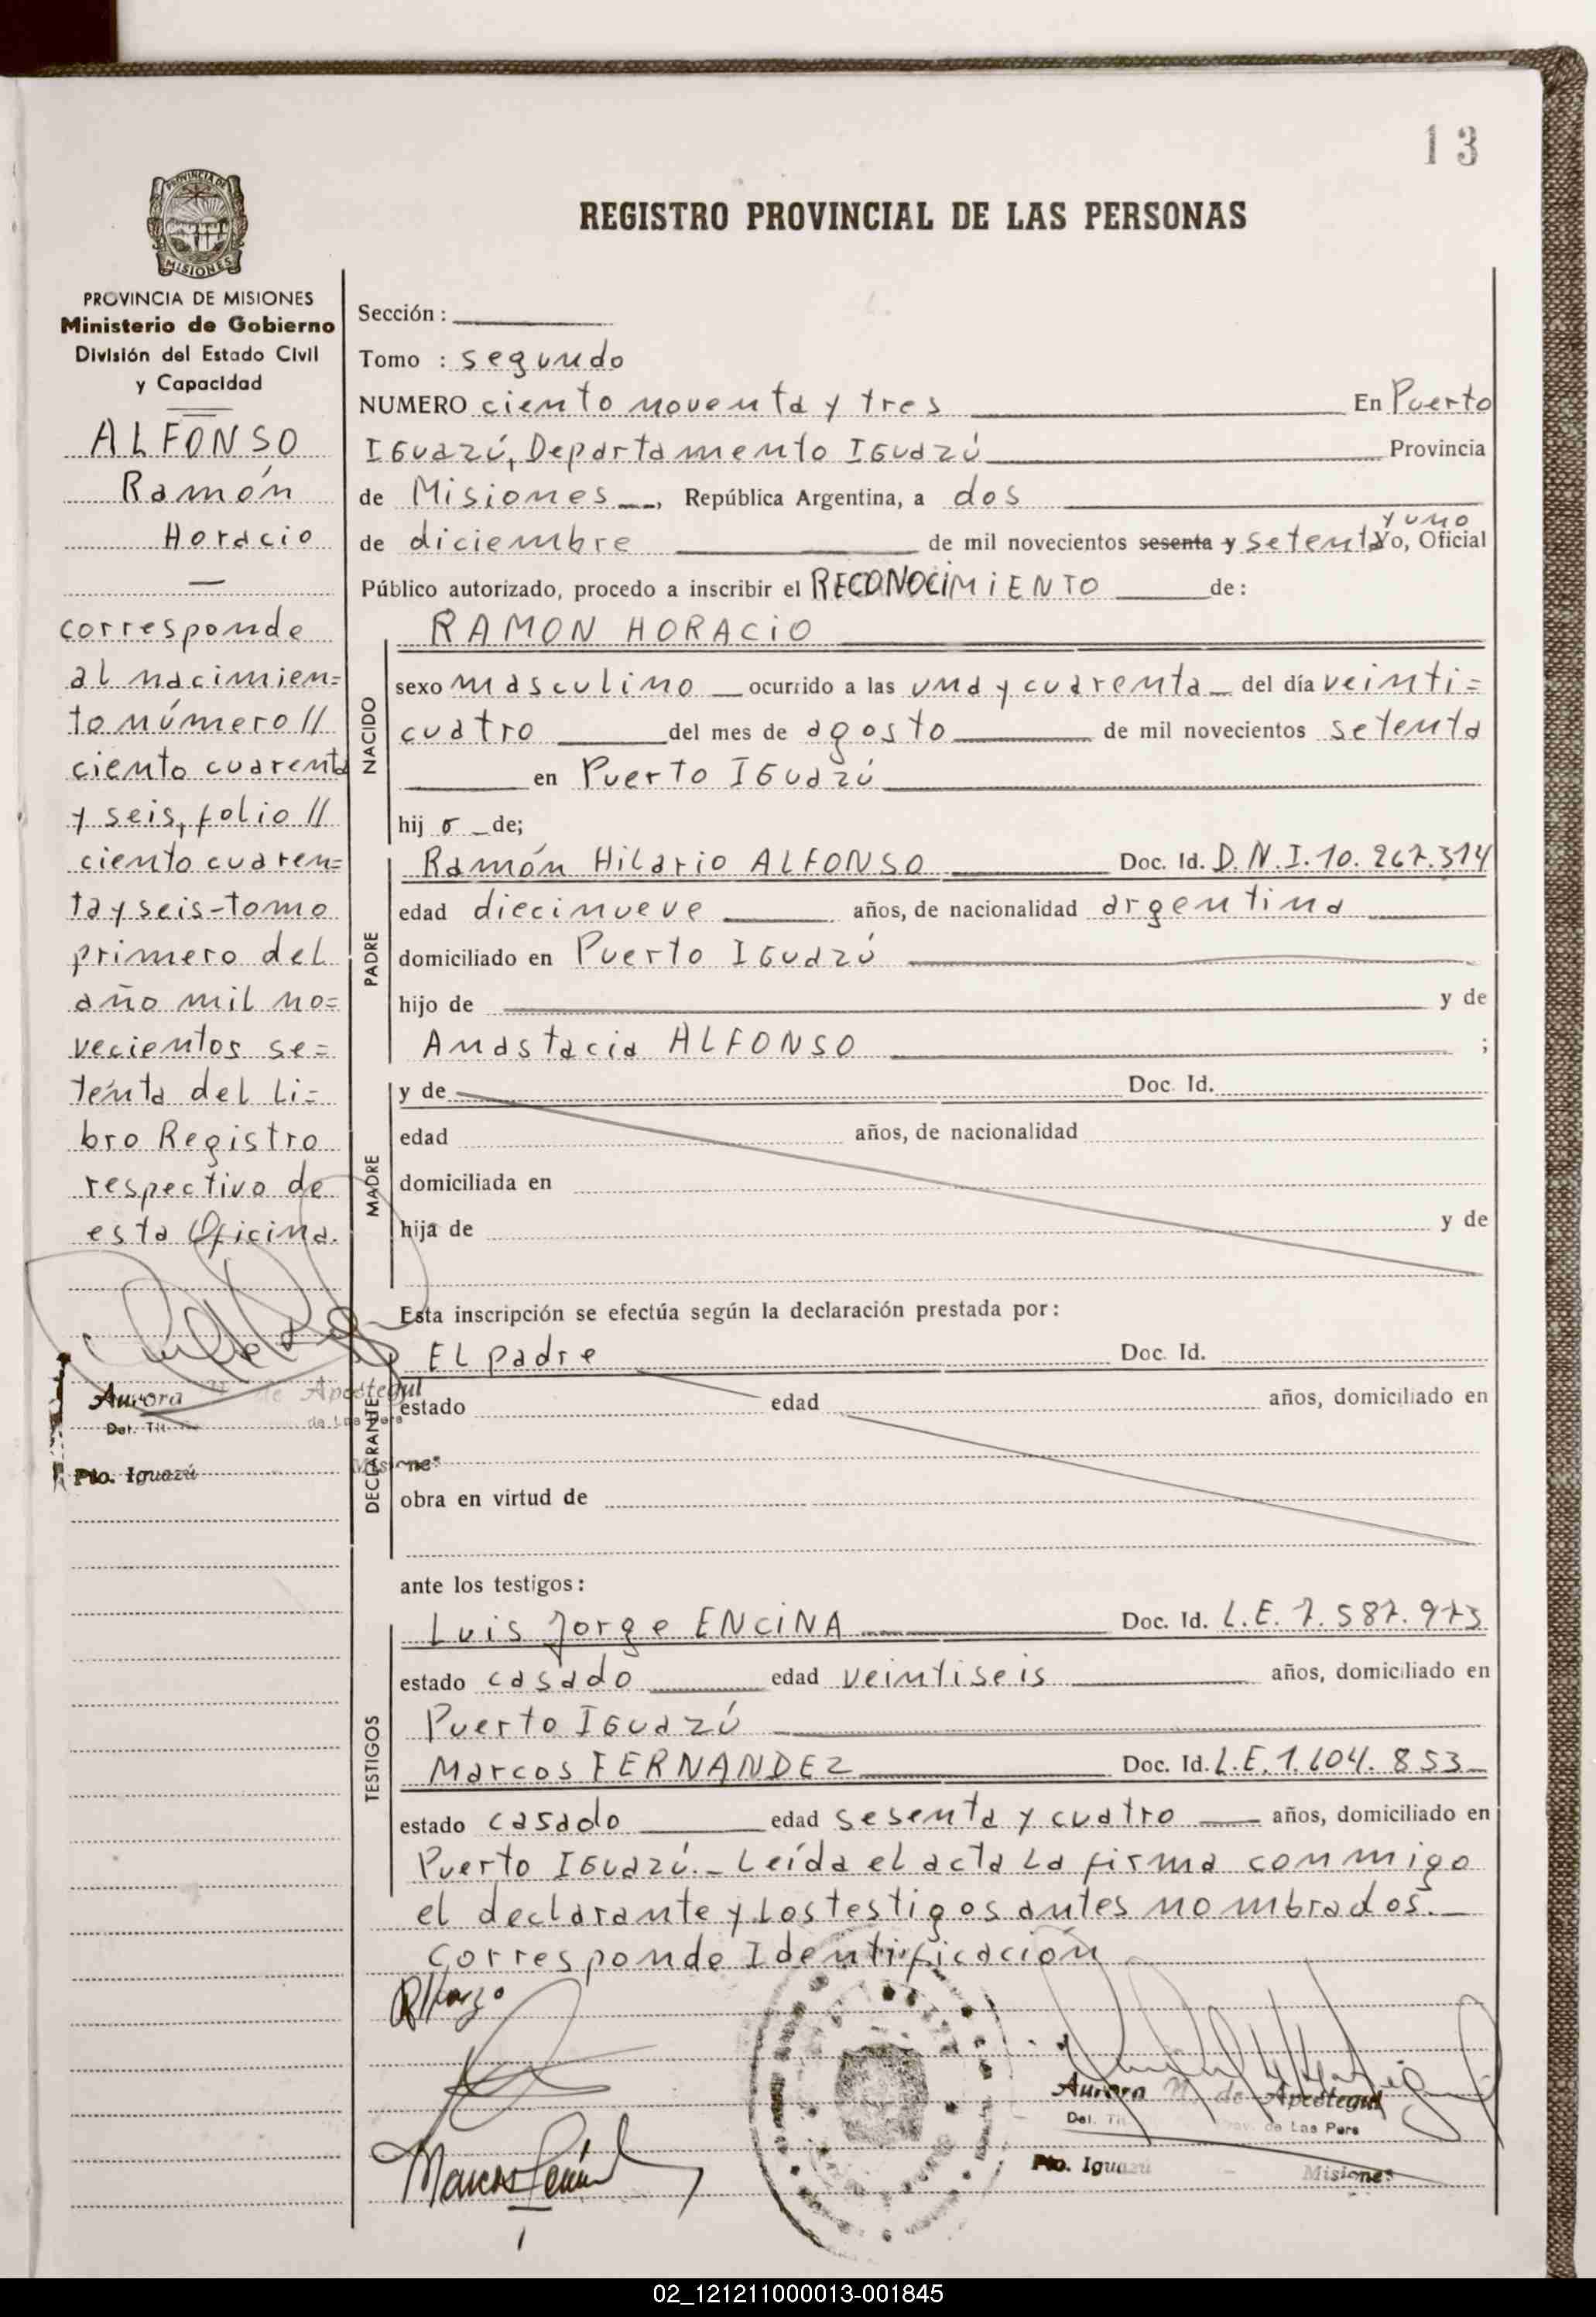 13
PROVINCIA DE
MISIONES
REGISTRO PROVINCIAL DE LAS PERSONAS
PROVINCIA DE MISIONES
Ministerio de Gobierno
División del Estado Civil
y Capacidad
ALFONSO
Ramón
Horacio
corresponde
al nacimien=
to número //
ciento cuarenta
y seis, folio //
ciento cuaren=
ta y seis-tomo
primero del
año mil no=
vecientos se=
tenta del Li=
bro Registro
respectivo de
esta Oficina.
Aurora de Apestegui
Del. Tit.
Pto. Iguazú Misiones
Sección :
Tomo : segundo
NUMERO ciento noventa y tres En Puerto
IGuazú, Departamento IGuazú Provincia
de Misiones, República Argentina, a dos
y uno
de diciembre de mil novecientos sesenta y setenta Yo, Oficial
Público autorizado, procedo a inscribir el RECONOCIMIENTO de:
RAMON HORACIO
NACIDO
sexo masculino ocurrido a las una y cuarenta del día veinti=
cuatro del mes de agosto de mil novecientos setenta
en Puerto IGuazú
hij o de;
PADRE
Ramón Hilario ALFONSO Doc. Id. D.N.I. 10.267.314
edad diecinueve años, de nacionalidad argentina
domiciliado en Puerto IGuazú
hijo de y de
Anastacia ALFONSO ;
MADRE
y de Doc. Id.
edad años, de nacionalidad
domiciliada en
hija de y de
Esta inscripción se efectúa según la declaración prestada por:
DECLARANTE
EL padre Doc. Id.
estado edad años, domiciliado en
obra en virtud de
ante los testigos:
TESTIGOS
Luis Jorge ENCINA Doc. Id. L.E. 7.587.973
estado casado edad veintiseis años, domiciliado en
Puerto IGuazú
Marcos FERNANDEZ Doc. Id. L.E. 1.604.853
estado casado edad sesenta y cuatro años, domiciliado en
Puerto IGuazú.- Leída el acta La firma conmigo
el declarante y Los testigos antes nombrados.-
Corresponde Identificación
Aurora de Apestegui
Del. Tit. Prov. de Las Pers
Pto. Iguazú - Misiones
02_121211000013-001845